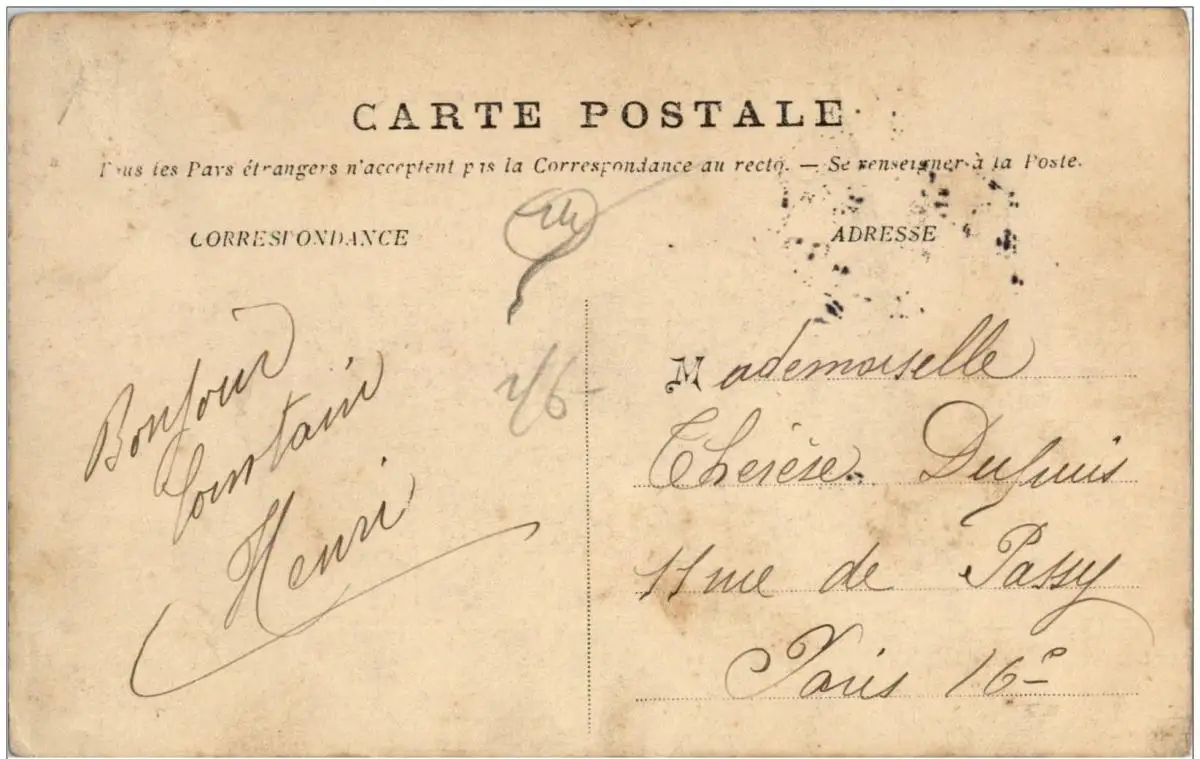 CARTE POSTALE
Tous les Pays étrangers n'acceptent pas la Correspondance au recto. — Se renseigner à la Poste.
CORRESPONDANCE
ADRESSE
Bonjour
Lointain
Henri
Mademoiselle
Thérèse Dupuis
11 rue de Passy
Paris 16e